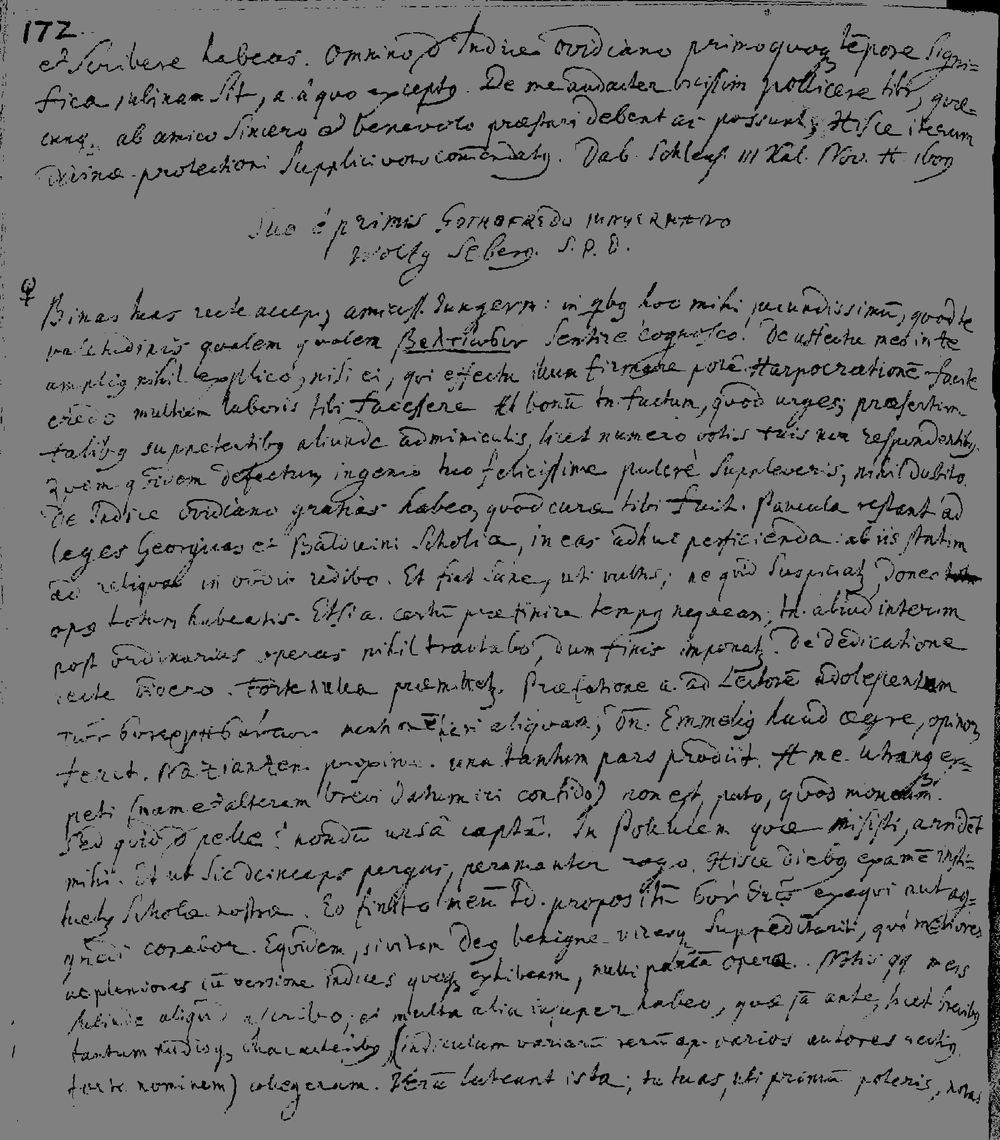 172
et Scribere habeas. Omnino d Indice ovidiano primoquoq tēpore Signi=
fica, Sit, a. a quo excepto. De me audacter vicissim pollicere tibi, quæ=
cunq. ab amico Sincero et benevolo præstari debent ac possunt; Hisce iterum
divinæ protectioni Supplici voto comendatq. Dab. Schleus. III Kal. Nov. A 1609
Suo é primis GOTHOFREDO IUNGERMANNO
Wolfg Seberq. S. P. D.
Binas has recte accepi, amiciss. Iungerm: in qbq hoc mihi jucundissimū, quod te
valetudinis qualem qualem Sentire cognosco. De affectu meo in te
ampliq nihil explico, nisi ei, qui effectu illum firmare potē. Harpocrationē facile
credo multum laboris tibi facessere. At bonū tn factum, quod urges; præsertim
talibq suppetentibq aliunde adminiculis, licet numero votis tuis non respondentibq.
Quem defectum ingenio tuo felicissime pulcre Suppleveris, nihil dubito.
De Indice ovidiano gratias habeo, quod curæ tibi fuit. Paucula restant ad
leges Georgicas et Balduini Scholia, in eas adhuc perficienda: ab iis statim
ad reliqua redibo. Et fiat Sane, uti vultis; ne qd Suspiciatq, donec
opq totum habeatis. Etsi a. certū præfinire tempq nequeam, tn. aliud interim
post ordinarias operas nihil tractabo, dum finis imponatq. De dedicatione
recte. Forte nulla præmittetq. Præfatione a. ad Lectorē adolescentem
aliquam; Dn. Emmeliq haud ægre, opinor,
feret. Nazianzen. una tantum pars prodiit. A me utranq ex=
peti (nam et alteram brevi daturum confido) non est, puto, quod moneam.
Sed quid d pelle? nondū ursā captā. In Pollucem quæ misisti, arridet
mihi. Et ut Sic deinceps pergas, peramanter rogo. Hisce diebq examē insti=
tuetq Scholæ nostræ. Eo finito meū propositū exequi aut ag=
conabor. Equidem, si vitam Deq benigne viresq Suppeditarit, quò meliores
ac pleniores cū versione indices quoq exhibeam, nulli parcā operæ. Notis qq meis
Subinde aliquid ascribo, et multa alia insuper habeo, quæ jā ante, licet brevibq
tantum characteribq (indiculum variarū rerū ap. varios autores
forte nominem) collegeram. Verū lateant ista; tu tuas, uti primū poteris, notas